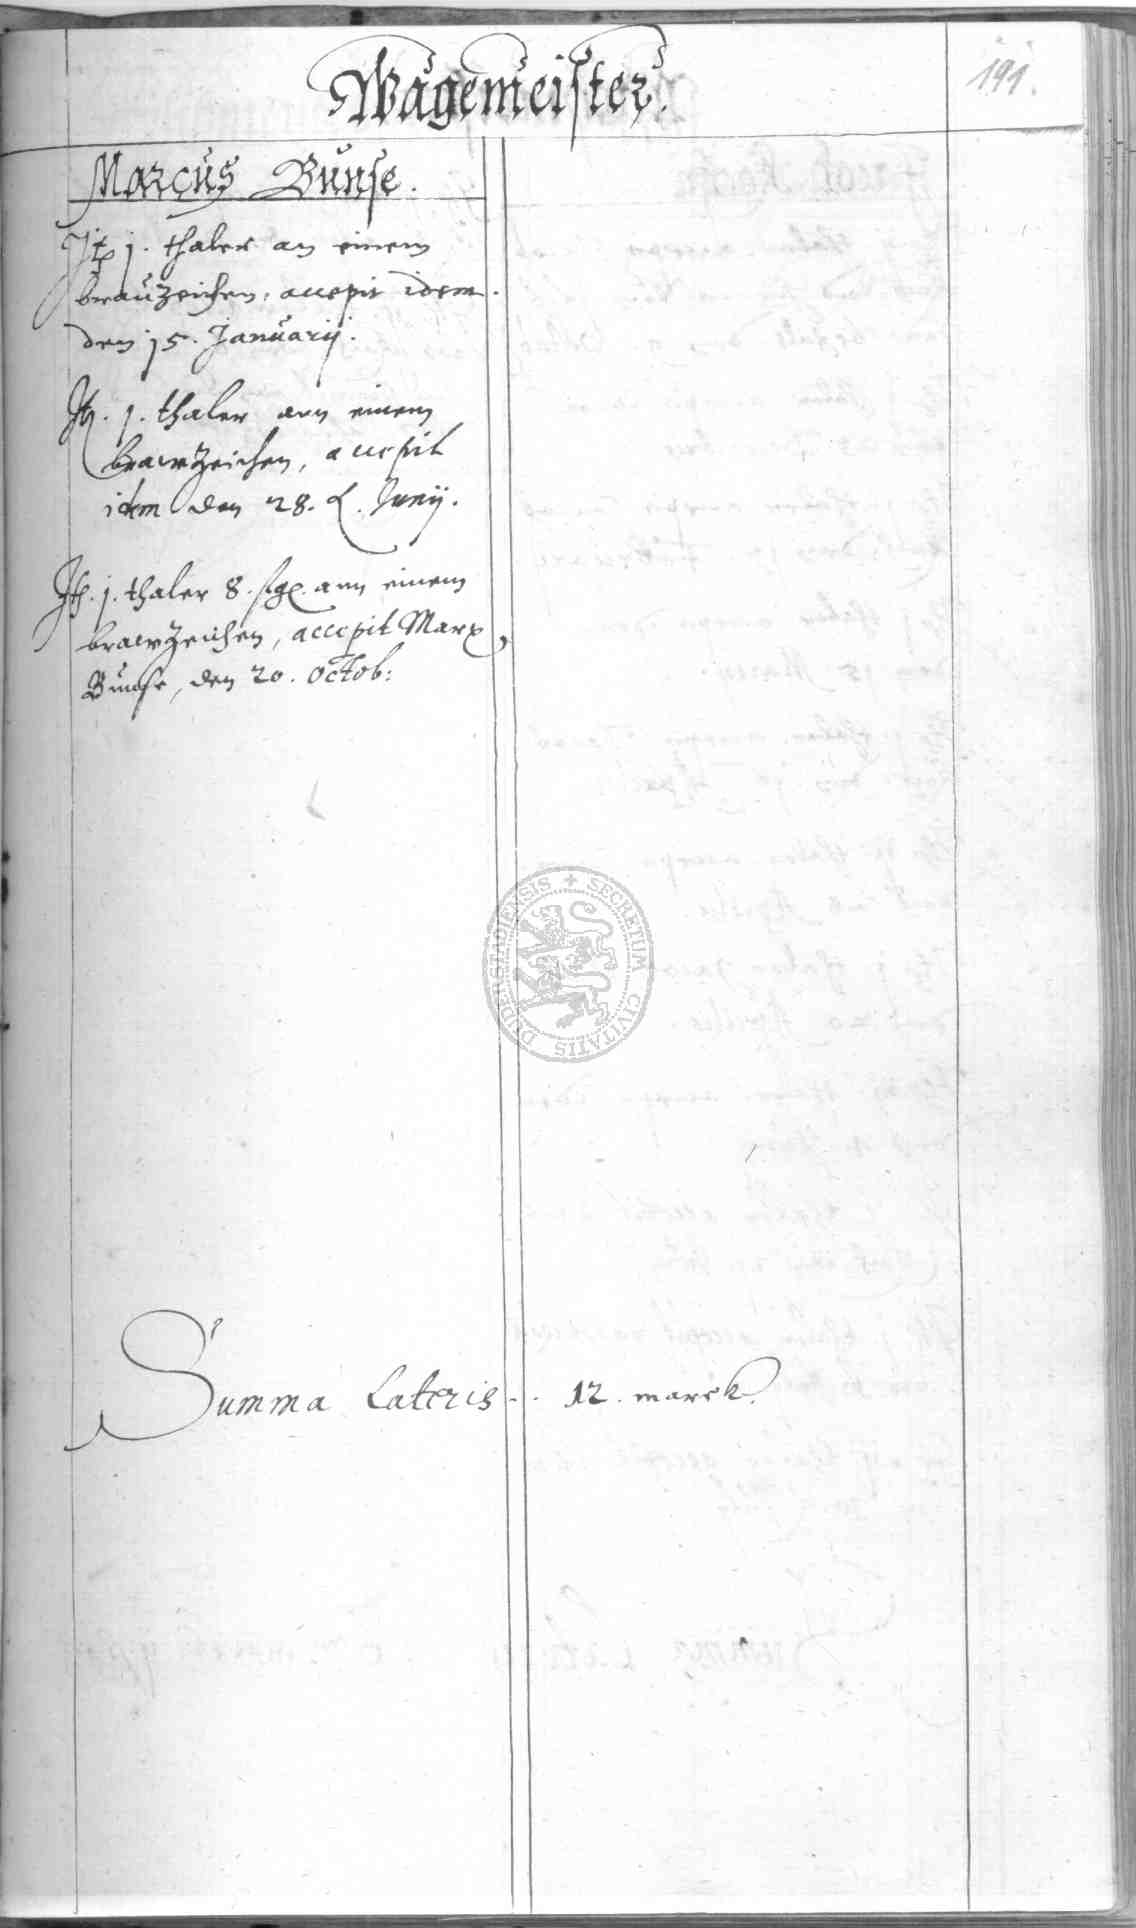 Wagemeister.
191.
Marcus Bunse.
Jt. j. thaler an einem
brauzeichen, accepit idem.
den 15. Januarij.
Jt. j. thaler ann einem
brawzeichen, accepit
idem den 28. Junij.
Jt. j. thaler 8. ann einem
brawzeichen, accepit Marx
Bunse, den 20. Octob:
Summa Lateris .. 12. marck.
SECRETUM CIVITATIS DUDERSTADIENSIS